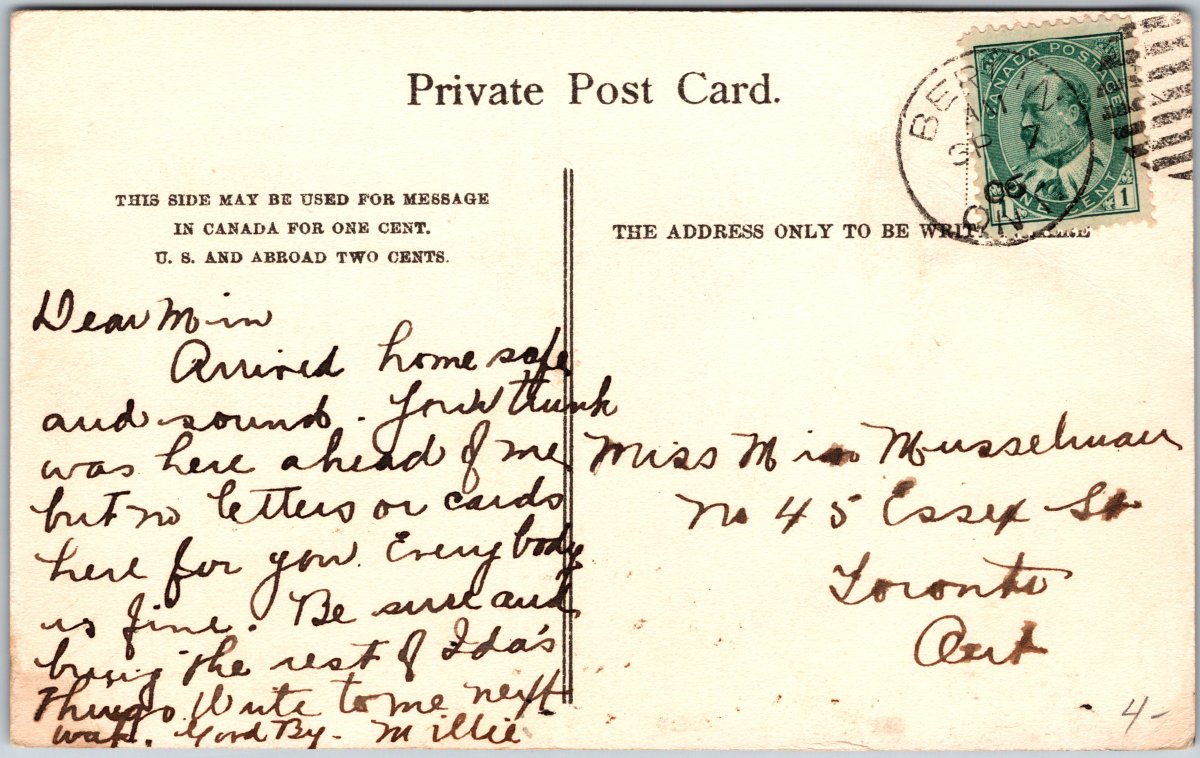 Private Post Card.
THIS SIDE MAY BE USED FOR MESSAGE
IN CANADA FOR ONE CENT.
U. S. AND ABROAD TWO CENTS.
THE ADDRESS ONLY TO BE
CANADA POSTAGE
1 ONE CENT 1
BER
AM
SP 7
06
ONT
Dear Min
Arrived home safe
and sound. trunk
was here ahead of me
but no letters or cards
here for you. Everybody
is fine. Be sure and
bring the rest of Ida's
things. Write to me next
Good By - Millie
Miss Min Musselman
No 45 Essex St
Toronto
Ont
4-